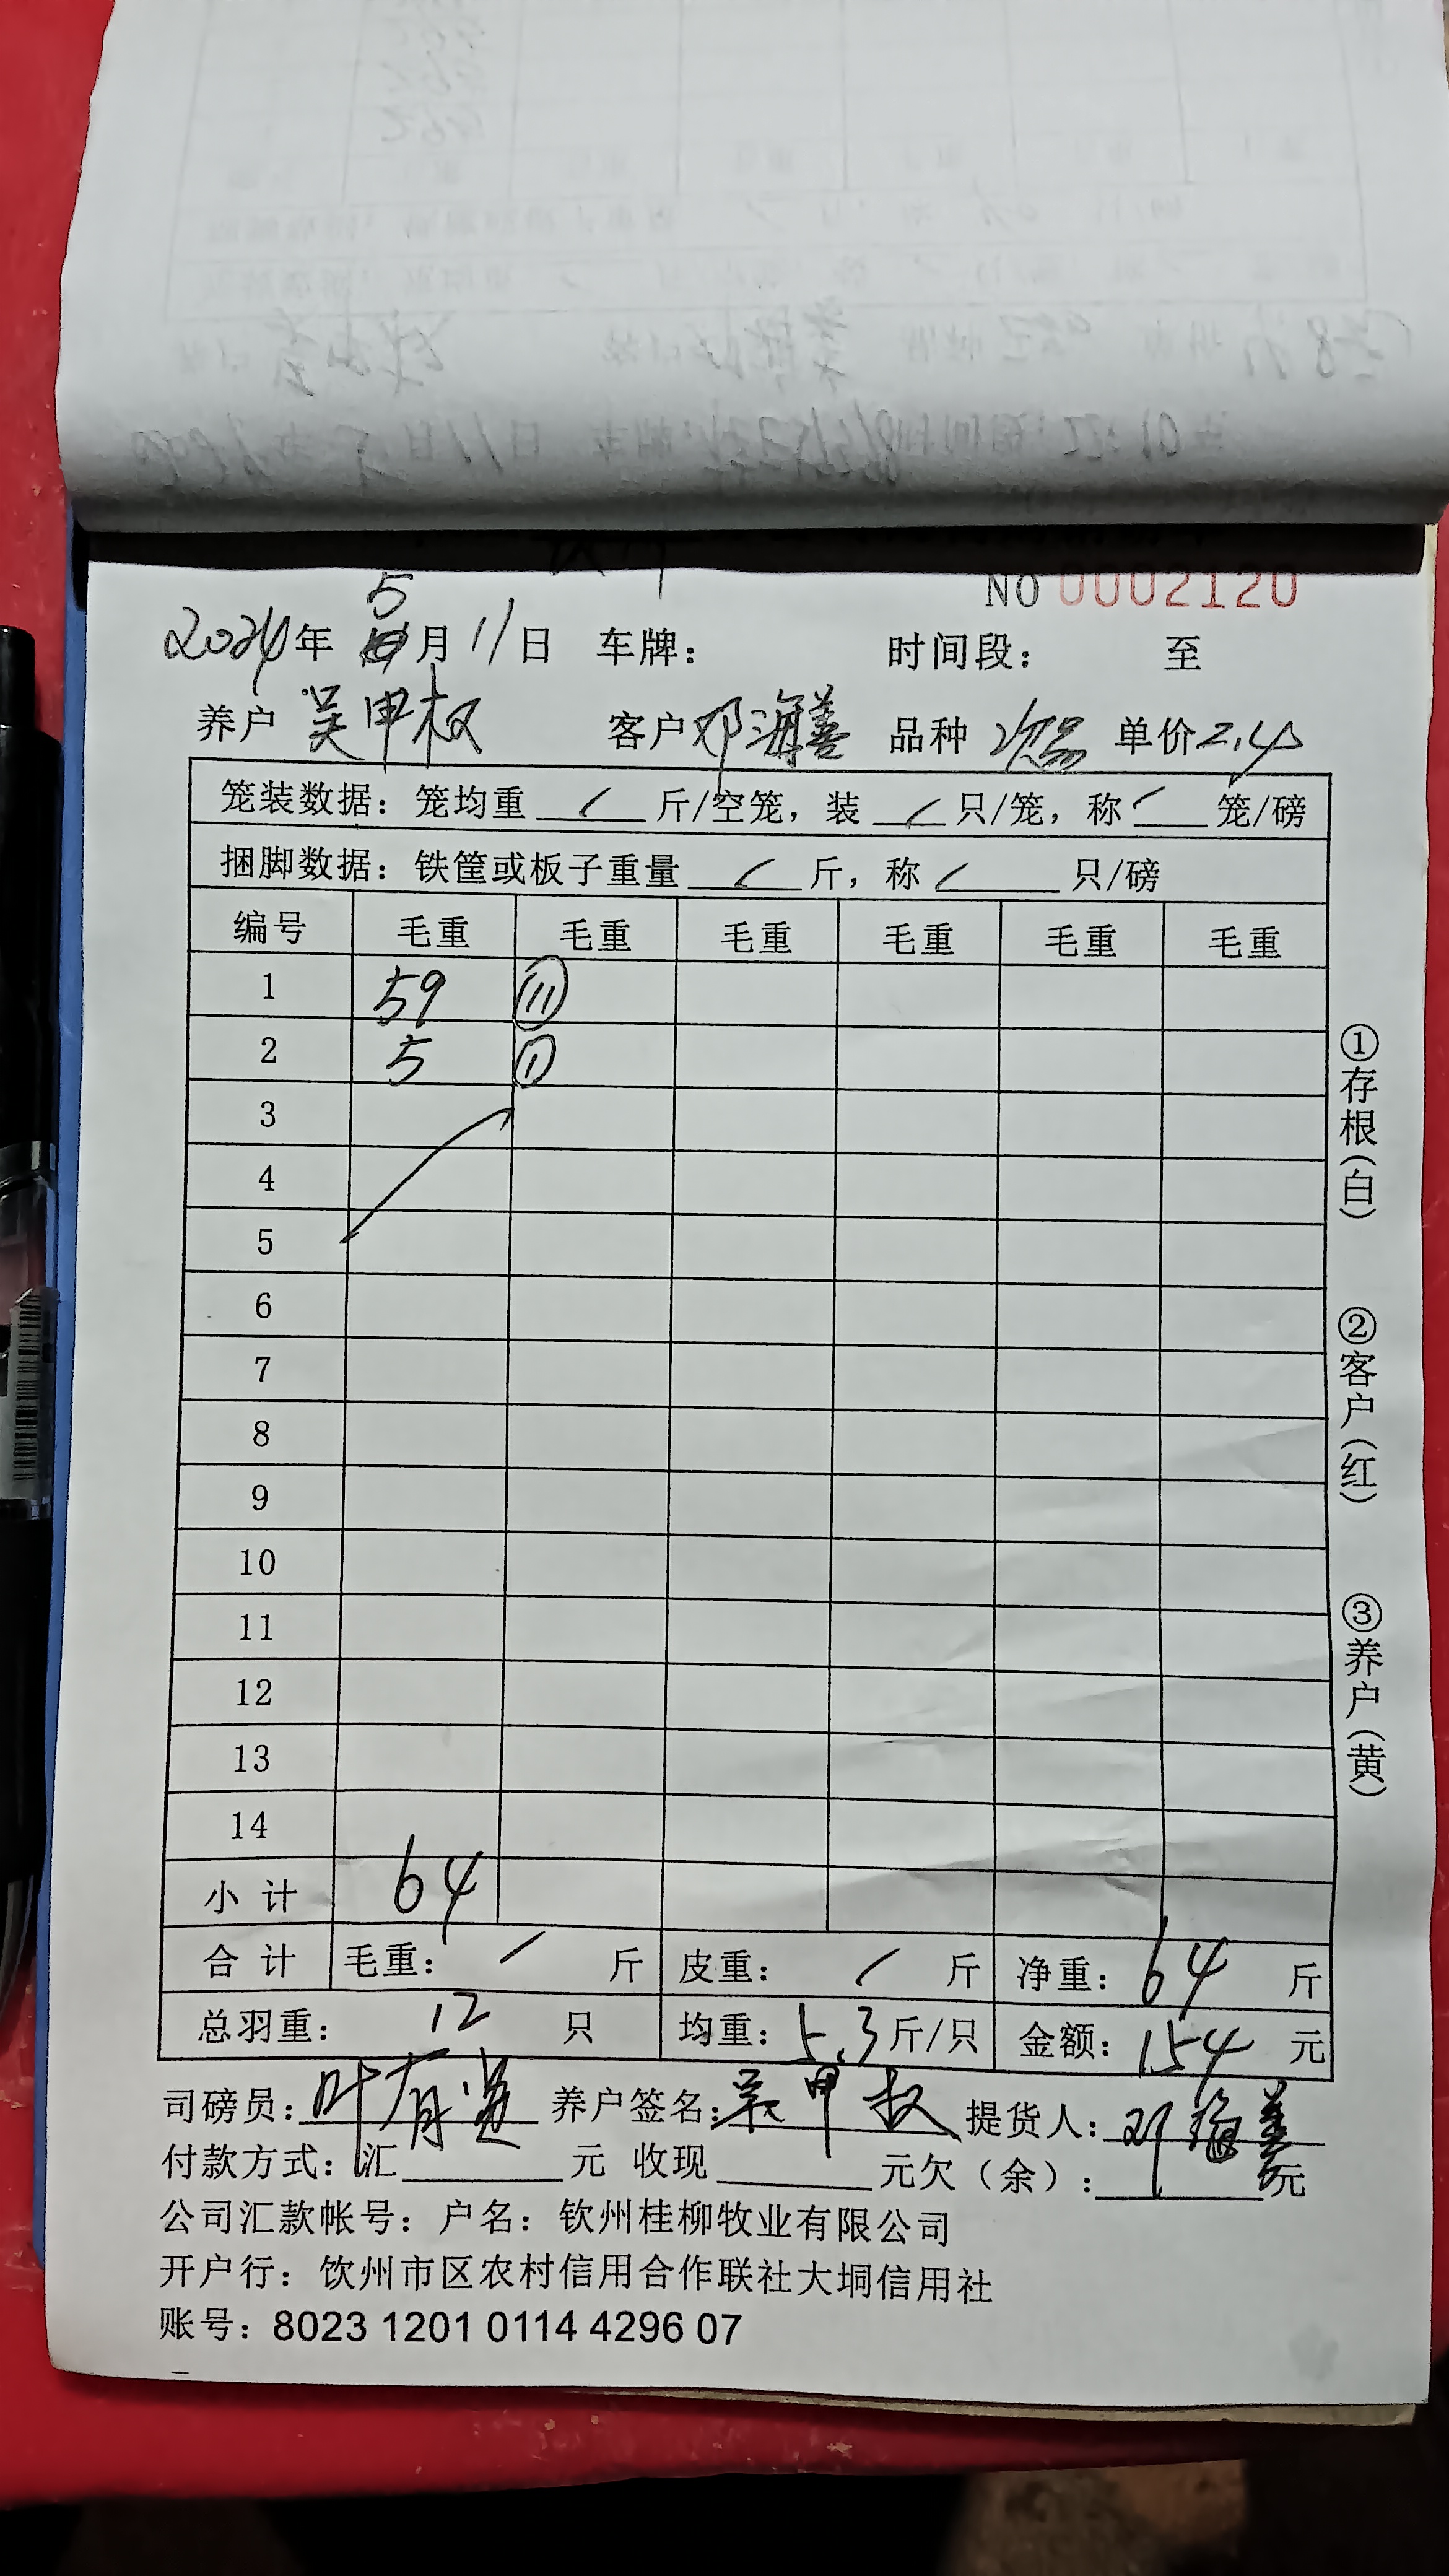 NO 0002120
2024年 5月11日 车牌： 时间段： 至
养户 吴甲权 客户 邓海善 品种 次品 单价 2.4
笼装数据：笼均重 / 斤/空笼，装 / 只/笼，称 / 笼/磅
捆脚数据：铁筐或板子重量 / 斤，称 / 只/磅
编号 毛重 毛重 毛重 毛重 毛重 毛重
1 59 ⑪
2 5 ①
3
4
5
6
7
8
9
10
11
12
13
14
小 计 64
合 计 毛重： / 斤 皮重： / 斤 净重：64 斤
总羽重： 12 只 均重：5.3斤/只 金额：154 元
司磅员：叶有 养户签名：吴甲权 提货人：邓海善
付款方式：汇 元 收现 元欠（余）： 元
公司汇款帐号：户名：钦州桂柳牧业有限公司
开户行：饮州市区农村信用合作联社大垌信用社
账号：8023 1201 0114 4296 07
①存根（白）
②客户（红）
③养户（黄）